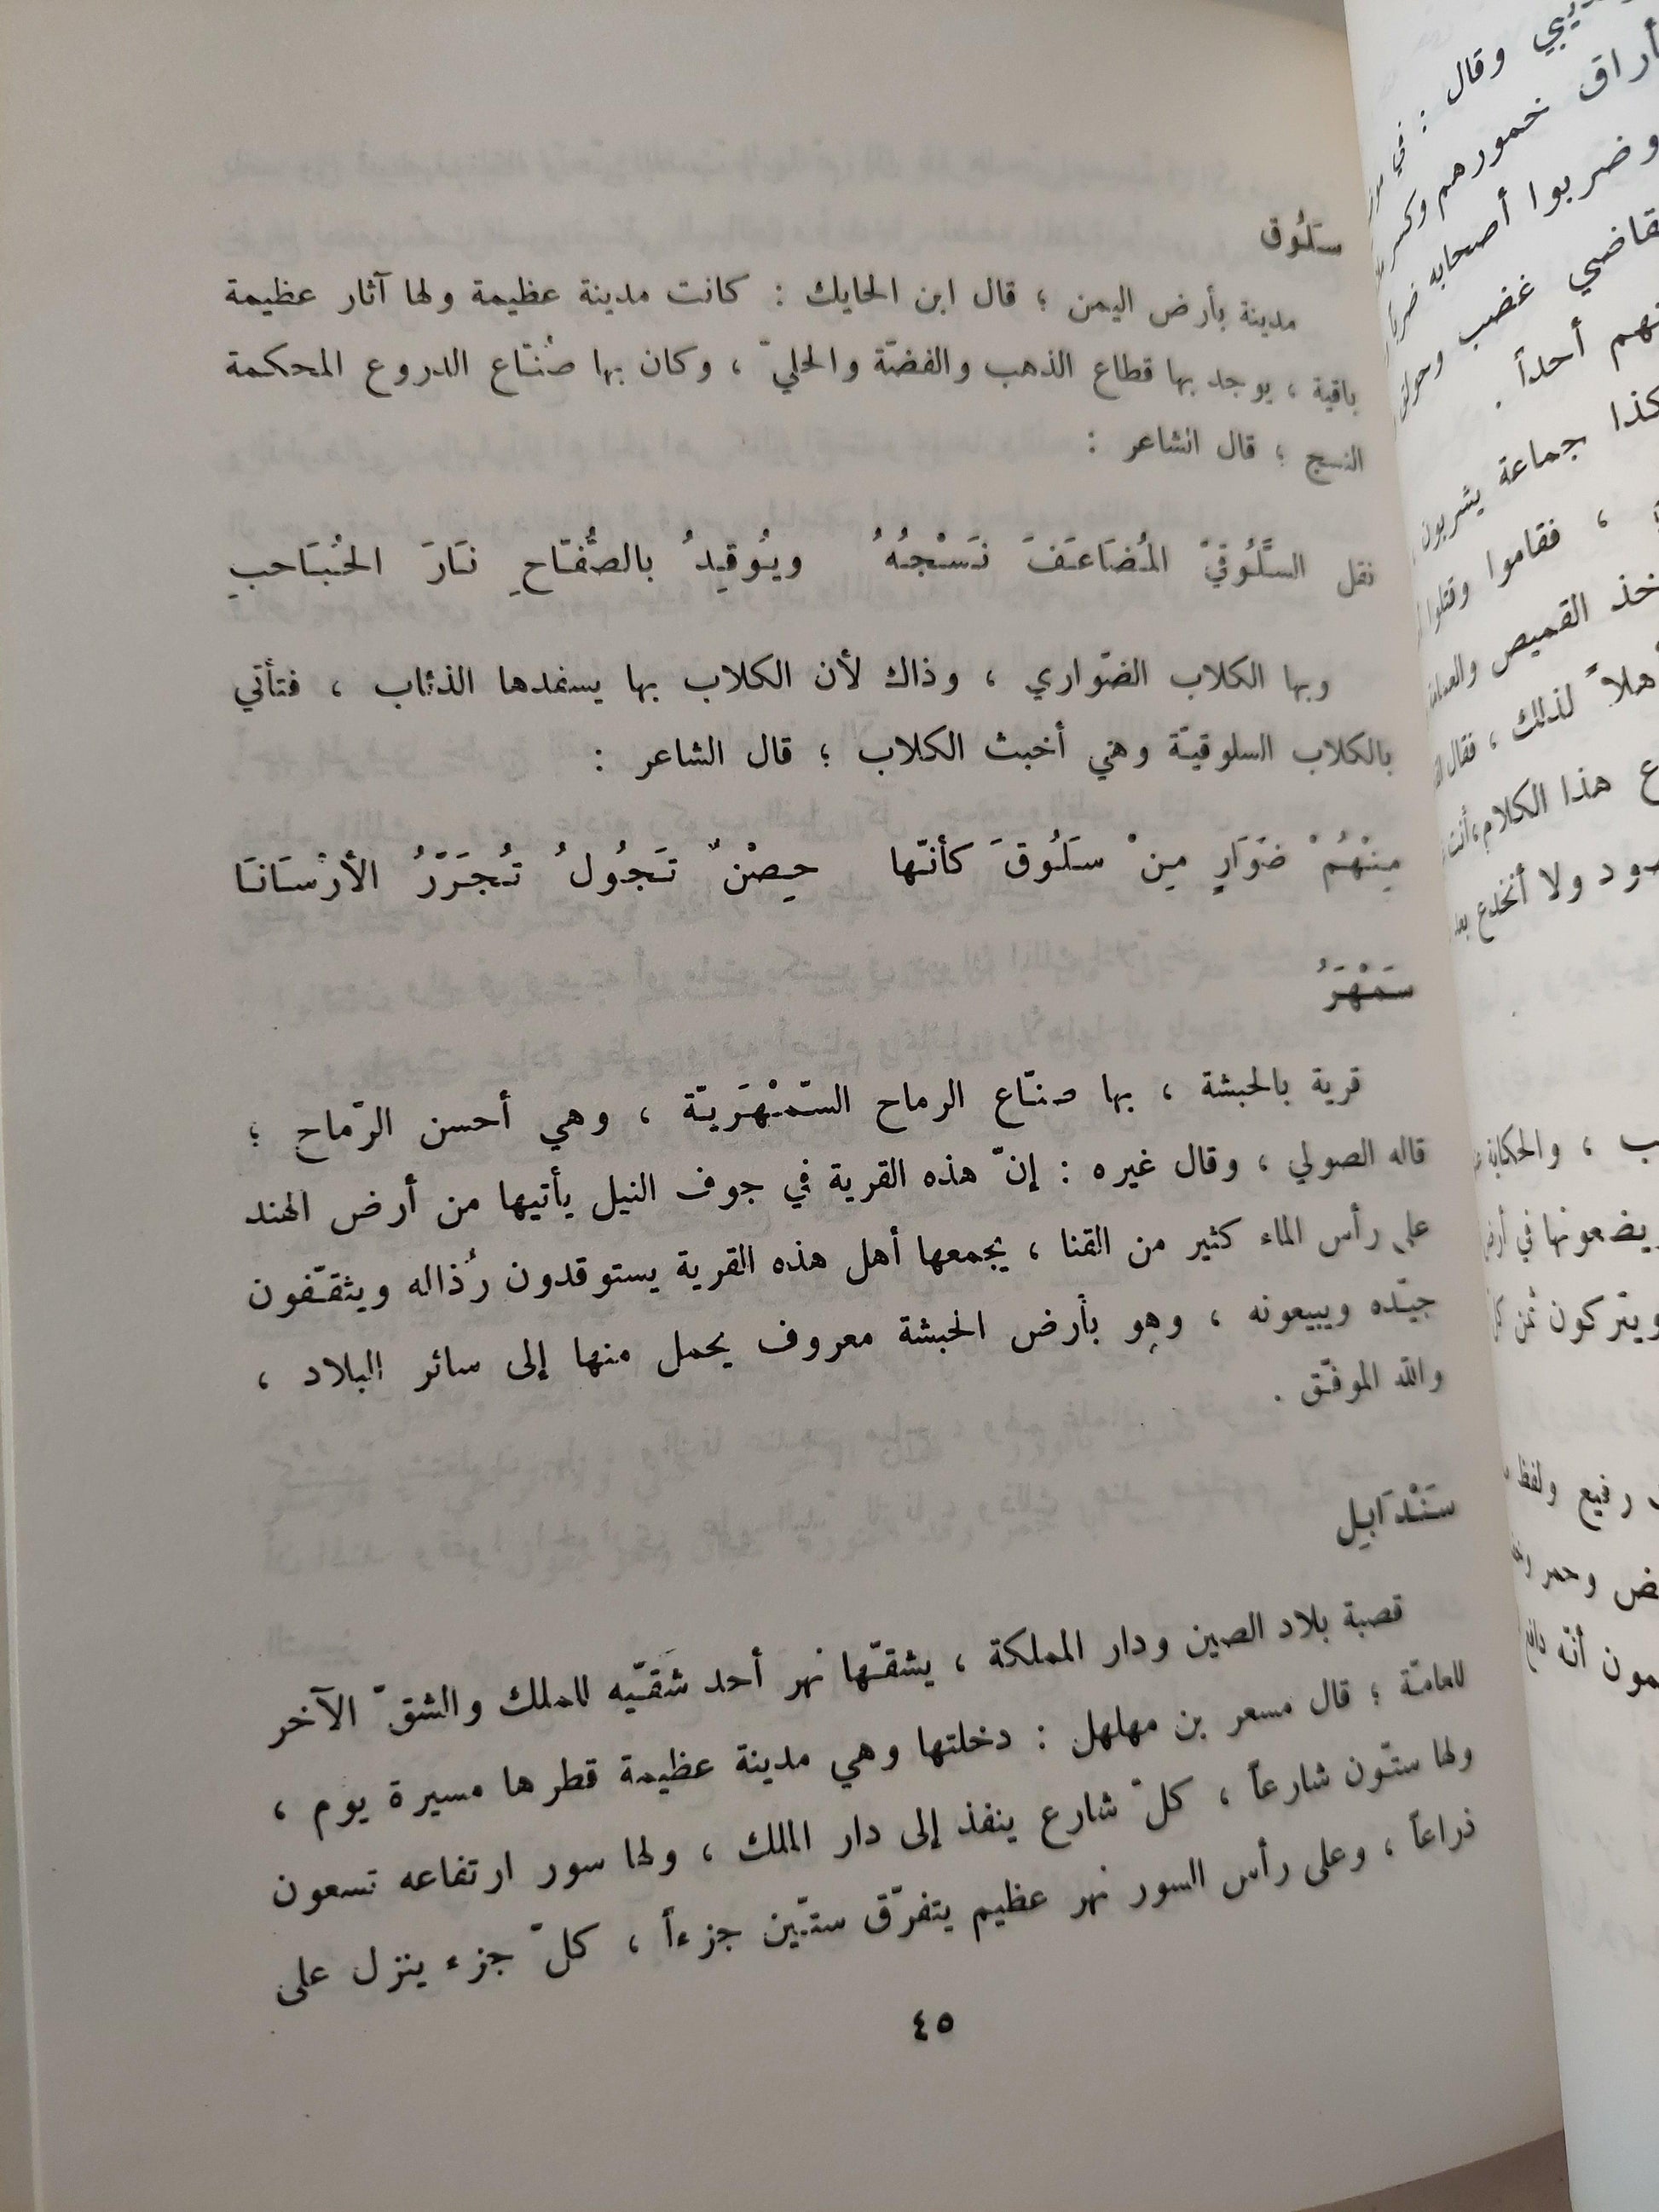 سَلُوق
مدينة بأرض اليمن ؛ قال ابن الحايك : كانت مدينة عظيمة ولها آثار عظيمة
باقية ، يوجد بها قطاع الذهب والفضّة والحليّ ، وكان بها صُنّاع الدروع المحكمة
النسج ؛ قال الشاعر :
نقل السَّلُوقيّ المُضَاعَفَ نَسْجُهُ ويُوقِدُ بالصُّفّاحِ نَارَ الحُبَاحبِ
وبها الكلاب الضّواري ، وذاك لأن الكلاب بها يسفدها الذئاب ، فتأتي
بالكلاب السلوقيّة وهي أخبث الكلاب ؛ قال الشاعر :
مِنْهُمْ ضَوَارٍ مِنْ سَلُوقَ كأنّها حِصْنٌ تَجُولُ تُجَرّرُ الأرْسَانَا
سَمْهَرُ
قرية بالحبشة ، بها صنّاع الرماح السّمْهَريّة ، وهي أحسن الرّماح ؛
قاله الصولي ، وقال غيره : إنّ هذه القرية في جوف النيل يأتيها من أرض الهند
على رأس الماء كثير من القنا ، يجمعها أهل هذه القرية يستوقدون رُذاله ويثقّفون
جيّده ويبيعونه ، وهو بأرض الحبشة معروف يحمل منها إلى سائر البلاد ،
والله الموفّق .
سَنْدَابِل
قصبة بلاد الصين ودار المملكة ، يشقّها نهر أحد شقّيه للملك والشقّ الآخر
للعامّة ؛ قال مسعر بن مهلهل : دخلتها وهي مدينة عظيمة قطرها مسيرة يوم ،
ولها ستّون شارعاً ، كلّ شارع ينفذ إلى دار الملك ، ولها سور ارتفاعه تسعون
ذراعاً ، وعلى رأس السور نهر عظيم يتفرّق ستّين جزءاً ، كلّ جزء ينزل على
٤٥
وقال : في
أراق خمورهم
وضربوا أصحابه
غضب
أحداً .
كذا جماعة يشربون
، فقاموا وقتلوا
القميص
لذلك ، فقال
هذا الكلام،أنت
ولا أنخدع
، والحكاية
يضعونها في
ويتركون ثمن
رفيع ولفظ
وحمر
أنّه